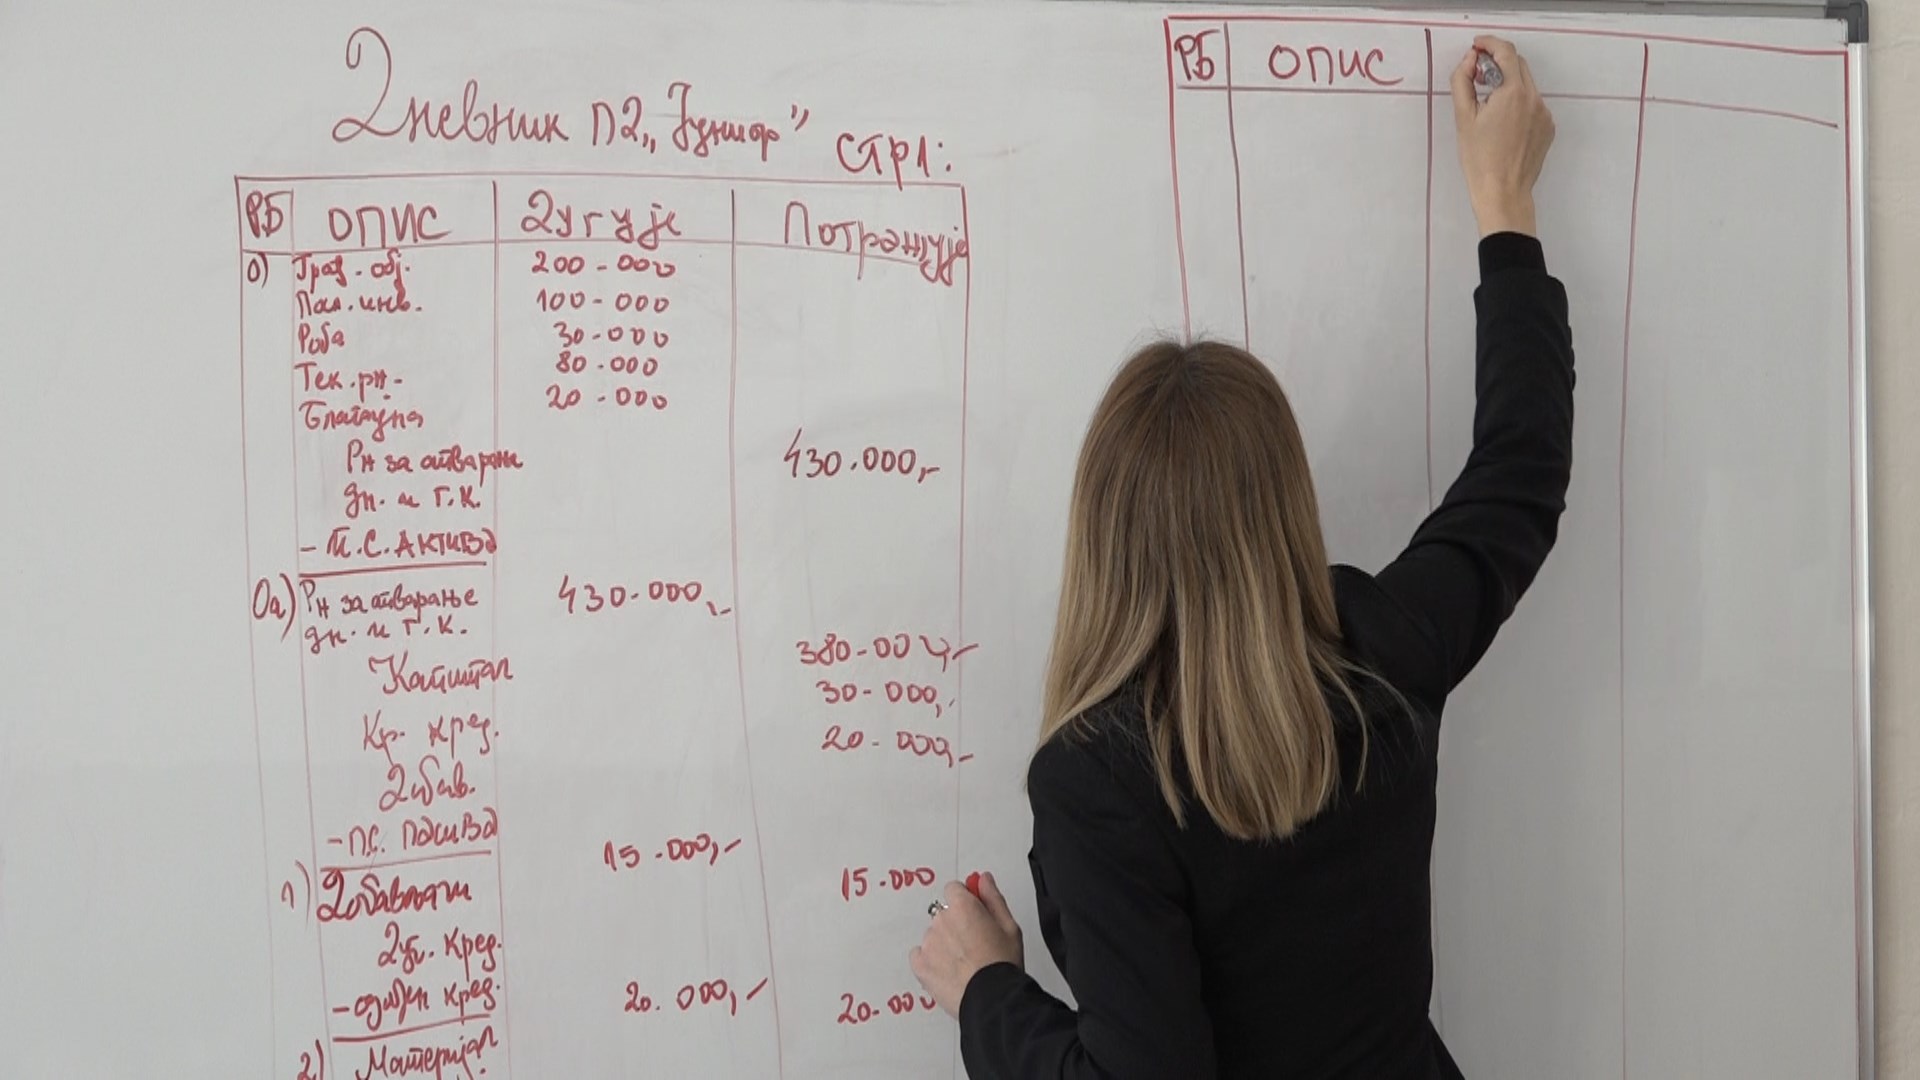 Дневник П2 „Јуниор” СТР1:
РБ ОПИС Дугује Потражује
0) Грађ. обј. 200.000
Пол. инв. 100.000
Роба 30.000
Тек. рн. 80.000
Благајна 20.000
Рн за отварање 430.000,-
дн. и Г.К.
- П.С. АКТИВА
0а) Рн за отварање 430.000,-
дн. и Г.К.
Капитал 380.000,-
Кр. кред. 30.000,-
Добав. 20.000,-
- П.С. ПАСИВА
1) Добављачи 15.000,-
Дуг. Кред. 15.000
- одобрен кред.
2) Материјал 20.000,- 20.000
РБ ОПИС